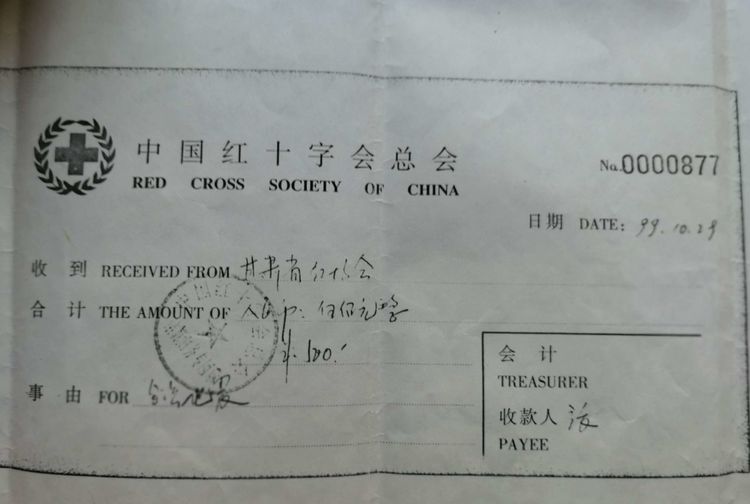 中国红十字会总会
RED CROSS SOCIETY OF CHINA
No.0000877
日期 DATE: 99.10.29
收到 RECEIVED FROM 甘肃省红十字会
合计 THE AMOUNT OF 人民币: 伍佰元整
¥500.-
事由 FOR 台湾地震
会计
TREASURER
收款人
PAYEE